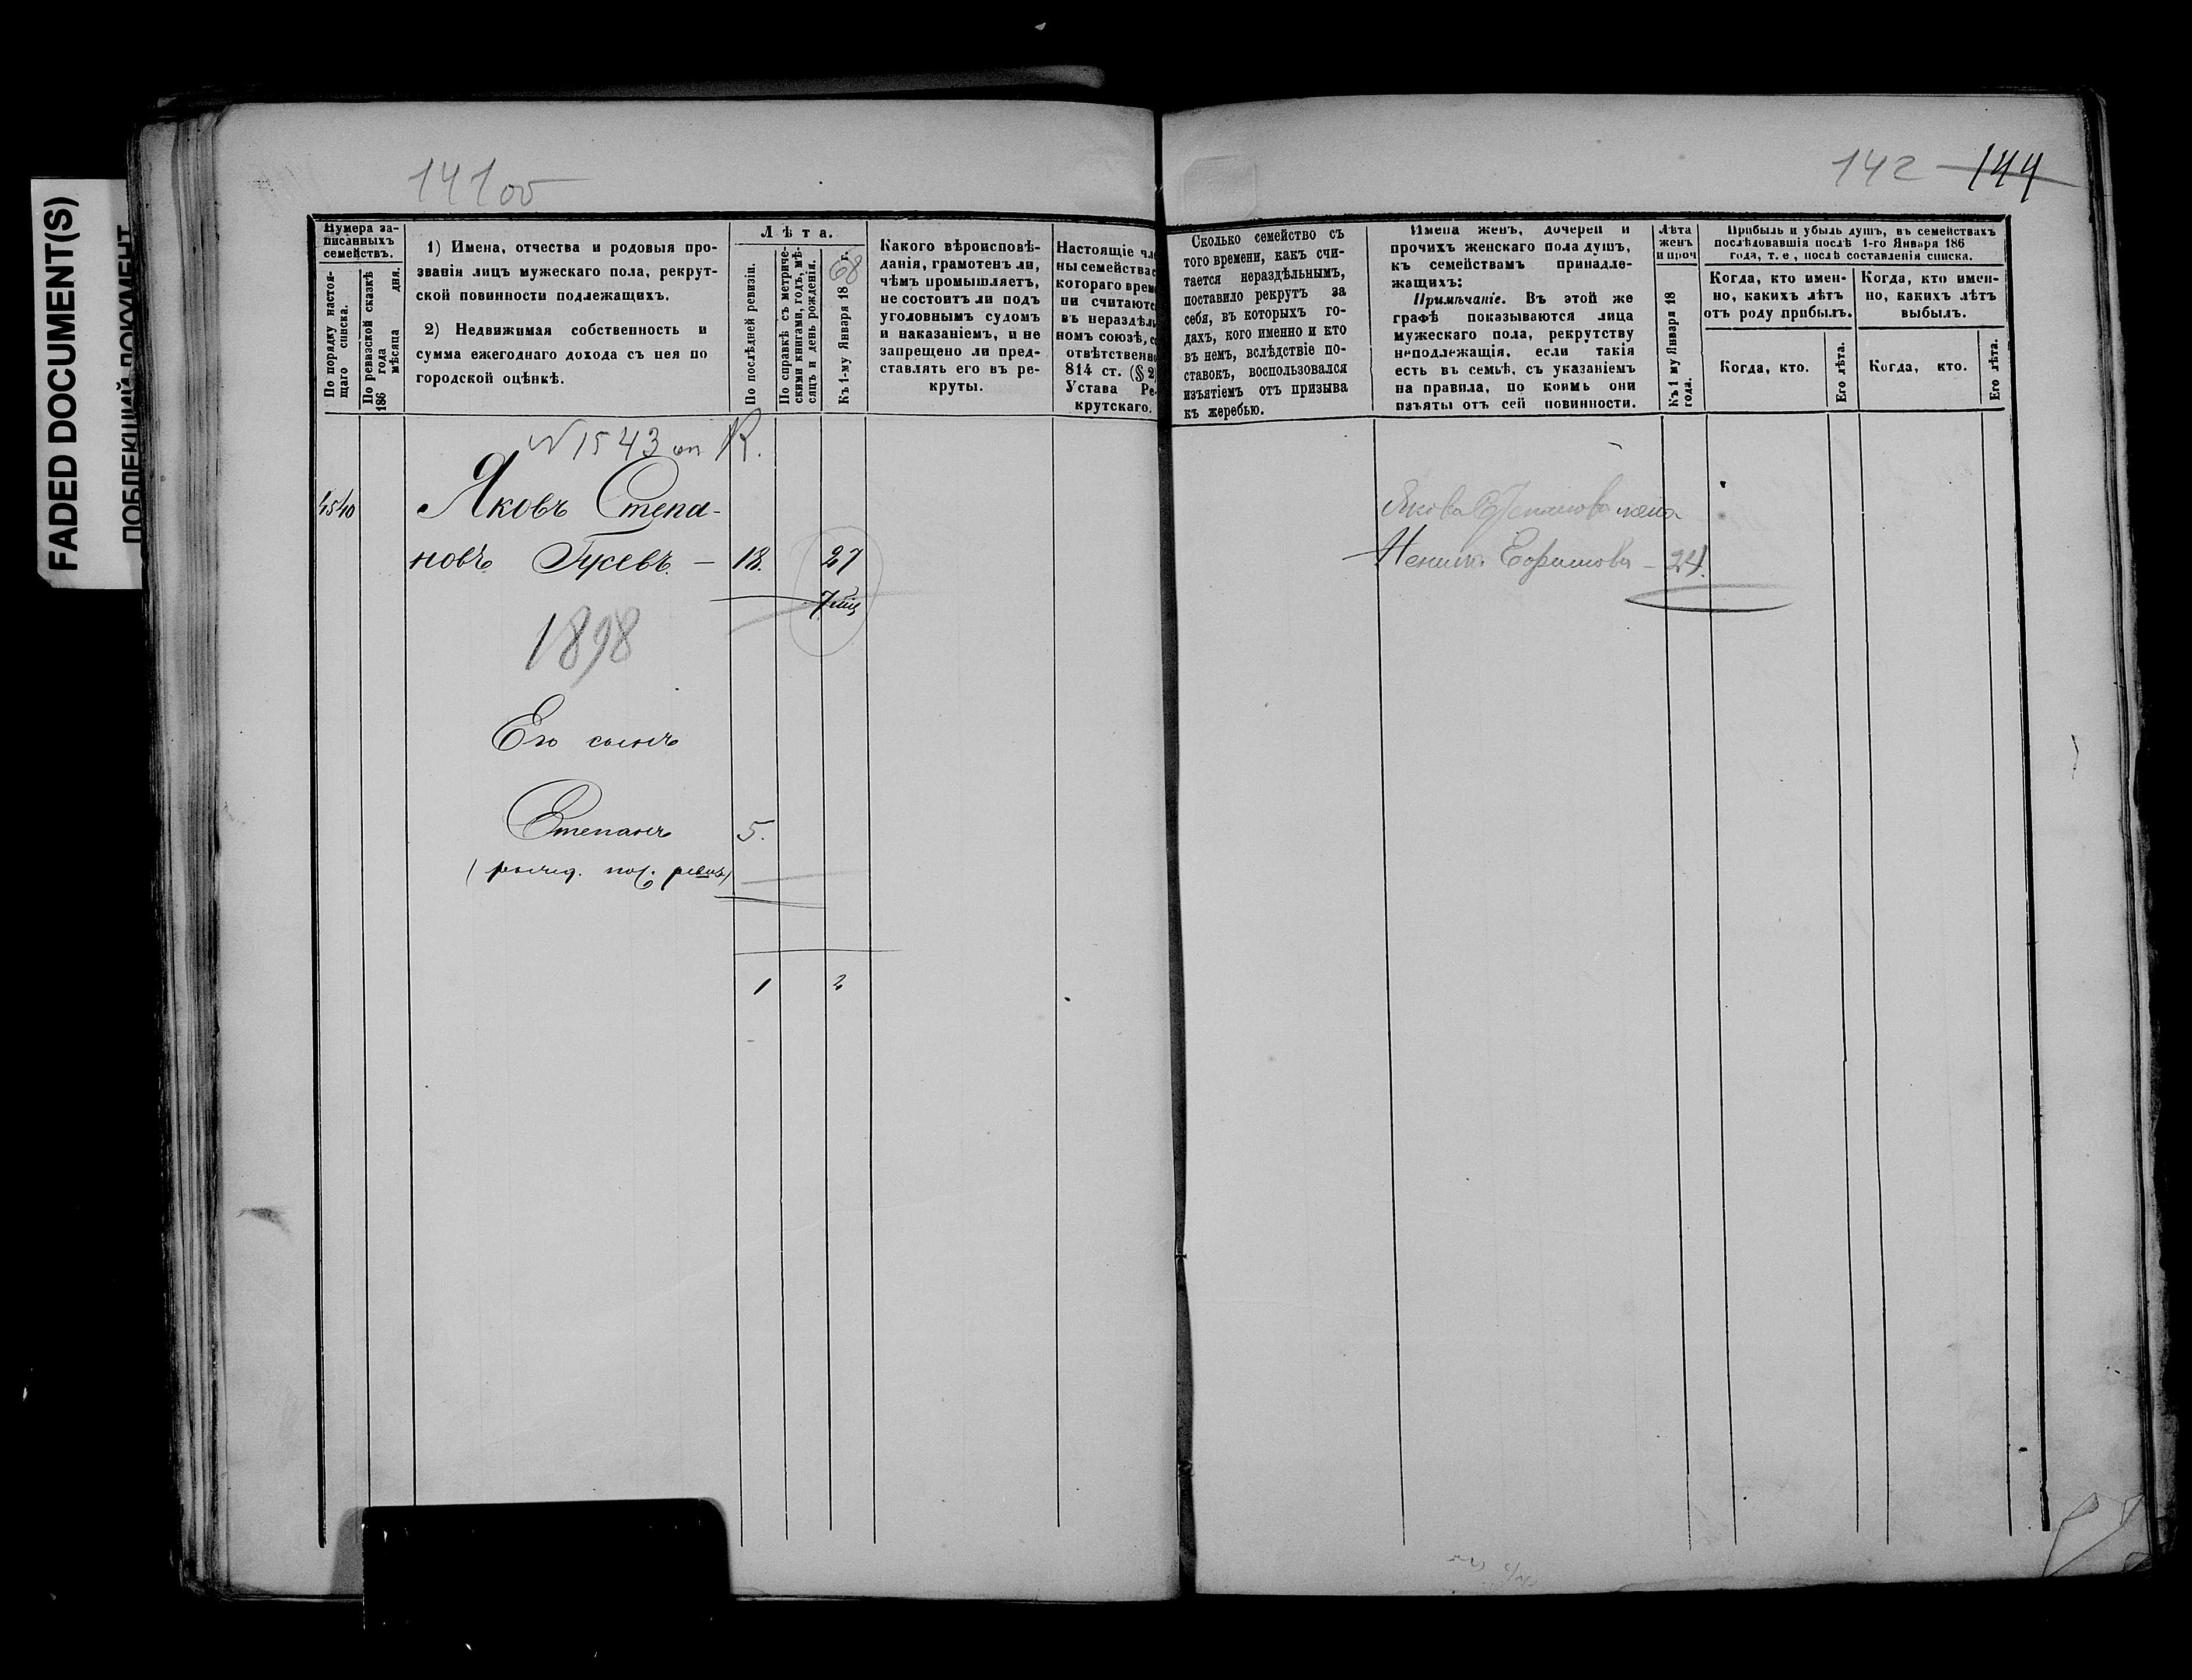 FADED DOCUMENT(S)
141 об
142 144
Нумера за-
писанныхъ
семействъ.
По порядку настоя-
щаго списка.
По ревизской сказкѣ
186 года мѣсяца дня.
1) Имена, отчества и родовыя про-
званія лицъ мужескаго пола, рекрут-
ской повинности подлежащихъ.
2) Недвижимая собственность и
сумма ежегоднаго дохода съ нея по
городской оцѣнкѣ.
Лѣта.
По послѣдней ревизіи.
По справкѣ съ метриче-
скими книгами, годъ, мѣ-
сяцъ и день рожденія.
Къ 1-му Января 1868 г.
Какого вѣроисповѣ-
данія, грамотенъ ли,
чѣмъ промышляетъ,
не состоитъ ли подъ
уголовнымъ судомъ
и наказаніемъ, и не
запрещено ли пред-
ставлять его въ ре-
круты.
Настоящіе чле
ны семейства с
котораго врем
ни считаютс
въ нераздѣль
номъ союзѣ, с
отвѣтственно
814 ст. (§ 2)
Устава Ре-
крутскаго.
Сколько семейство съ
того времени, какъ счи-
тается нераздѣльнымъ,
поставило рекрутъ за
себя, въ которыхъ го-
дахъ, кого именно и кто
въ немъ, вслѣдствіе по-
ставокъ, воспользовался
изъятіемъ отъ призыва
къ жеребью.
Имена женъ, дочерей и
прочихъ женскаго пола душъ,
къ семействамъ принадле-
жащихъ:
Примѣчаніе. Въ этой же
графѣ показываются лица
мужескаго пола, рекрутству
неподлежащія, если такія
есть въ семьѣ, съ указаніемъ
на правила, по коимъ они
изъяты отъ сей повинности.
Лѣта
женъ
и проч
Къ 1 му Января 18
года.
Прибыль и убыль душъ, въ семействахъ
послѣдовавшія послѣ 1-го Января 186
года, т. е , послѣ составленія списка.
Когда, кто имен-
но, какихъ лѣтъ
отъ роду прибылъ.
Когда, кто имен-
но, какихъ лѣтъ
выбылъ.
Когда, кто.
Его лѣта.
Когда, кто.
Его лѣта.
N 1543
1540 Яковъ Степа-
новъ Гусевъ. — 18. 27
1898
Его сынъ
Степанъ 5.
1 2
Якова Степанова жена
Ефимова — 24.